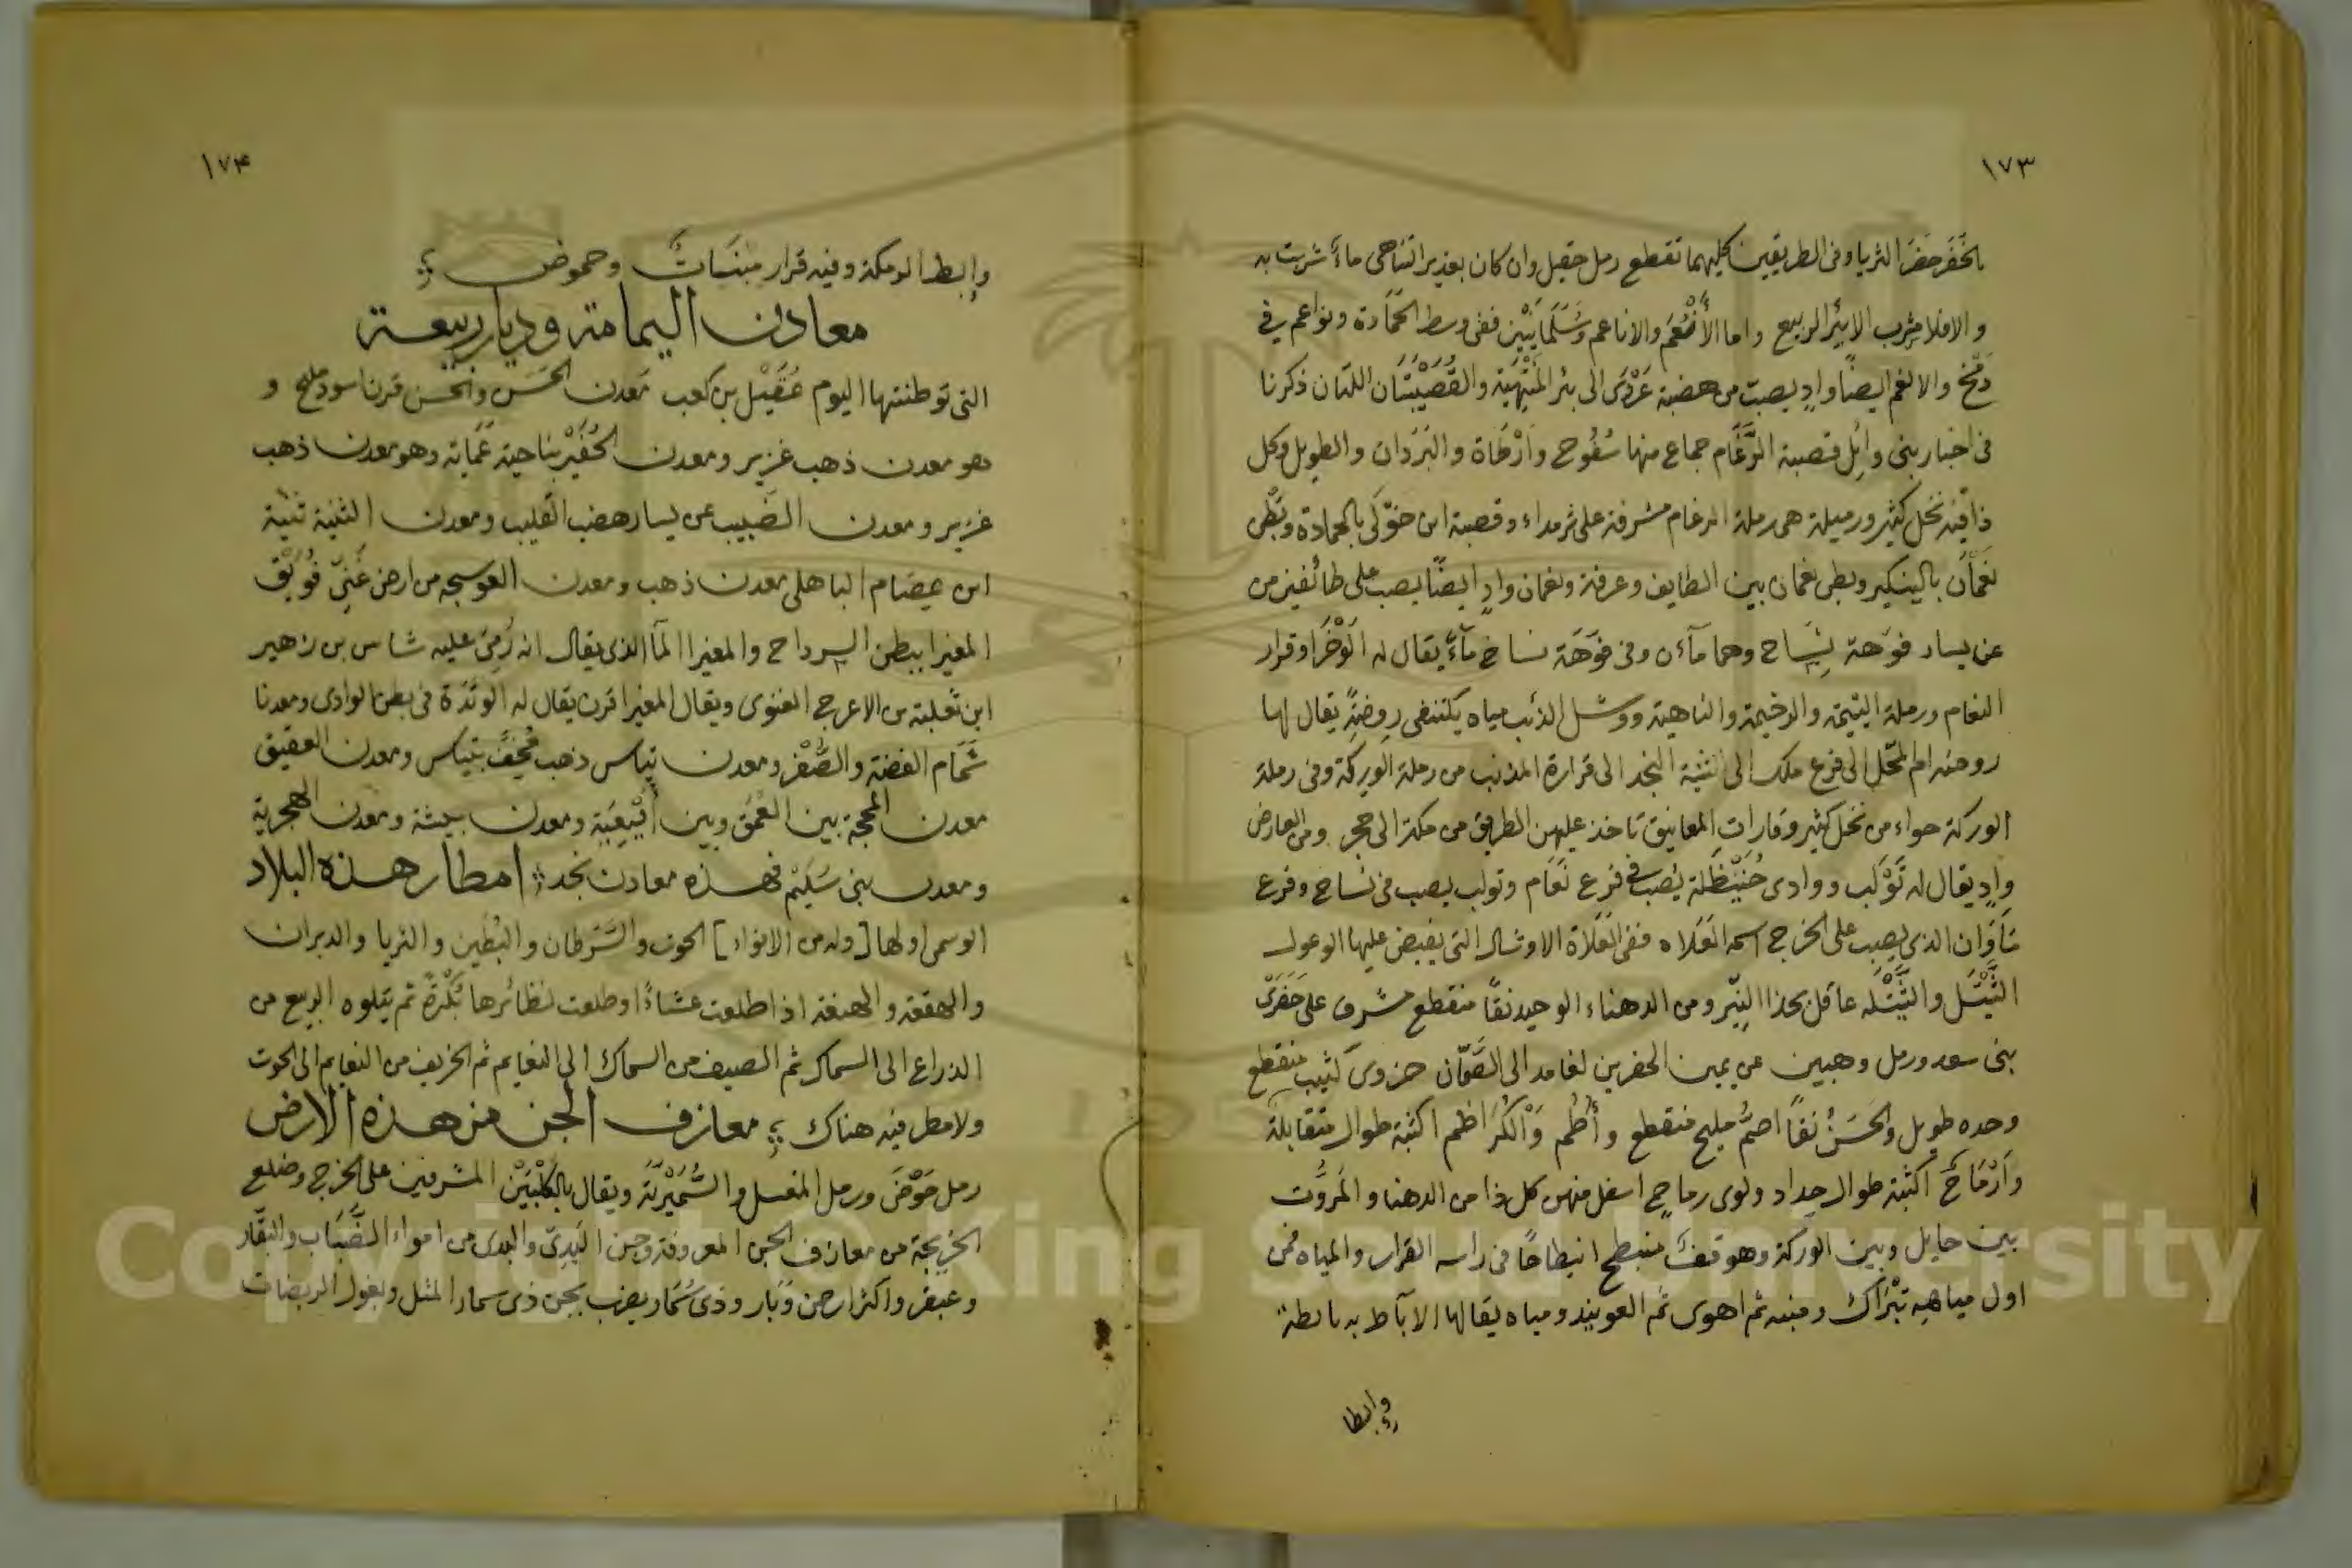 ١٧٣
بالحَفَر حَفَر الثريا وفى الطريقين كليهما تقطع رمل حقيل وان كان بغدير التناهى ماءً شربت به
والا فلا مشرب الا بئر الربيع واما الأَنْعُم والاناعم وسُلَّمَانَيْن ففى وسط الحَمَادة ونواعم فى
دَمْخ والانعم ايضًا وادٍ يصبّ من هضبة عَرْدَى الى بئر المَنْتَهَبَة والقُصَيْبَتَان اللتان ذكرنا
فى اخبار بنى وائل قصيبة الرَّغَام جماع منها سُفُوح وأَرْطَاة والبَرَدان والطويل وكل
ذا فيه نخل كثير ورميلة هى رملة الرغام مشرفة على ثرمداء وقصيبة ابن خوّلى بالحمادة وبَطْن
نَعْمَان بالبنكير وبطن نعمان بين الطايف وعرفة ونعمان وادٍ ايضًا يصب على طائفين من
عن يسار فوّهة نِسَاح وهما مآءن وفى فوّهَة نساح ماءٌ يقال له الوَخْرَا وقرار
النعام ورملة اليتيمة والرخيمة والناهية ووشل الذئب مياه يكتنفن روضةً يقال لها
روضه ام المحل الى فرع ملك الى الثنية النجد الى قرارة المذنب من رملة الوركة وفى رملة
الوركة حواء من نخل كثير وقارات المعانيق تاخذ عليهن الطريق من مكة الى حجر ومن العارض
وادٍ يقال له تَوْلَب ووادى حُنَيْظَلة يُصب فى فرع نَعَام وتولب يصب فى نساح وفرع
نَاوَان الذى يصب على الخرج اسمه الفَلَاه ففى الفَلَاة الاوشال التى يفيض عليها الوعول
الثَّيْتَل والثَّيْتَله عاقل بحذا النِّير ومن الدهناء الوحيد نقًا منقطع مشرف على حَفَرَىْ
بنى سعد ورمل وهبين عن يمين الحفرين لغامد الى الصَّمّان حزوى كثيب منقطع
وحده طويل والحَسَنُ نقًا اصمُّ مليح منقطع وأُطُم وَالْكُرَاظم اكثبة طوال متقابلة
وَأَرْمَاحٌ اكثبة طوال حِداد ولوى رماحٍ اسفل منهن كل ذا من الدهنا والمَرُّوت
بين حايل وبين الوركة وهو قفٌّ منبطح انبطاحًا فى راسه القرار والمياه فمن
اول مياهه تِبْرَاك ومنه ثم اهوى ثم العويند ومياه يقال لها الآباط به نابطة
وإبطا
١٧٤
وإبط الرمكة وفيه قرار منسَاتٌ وحموض
معادن اليمامة وديار ربيعة
التى توطنتها اليوم عُقَيْل بن كعب مَعدن الحَسَن والحسن قرن اسود مليح و
هو معدن ذهب غزير ومعدن الحُفَيْر بناحية عَمَاية وهو معدن ذهب
غزير ومعدن الضَبيب عن يسار هضب القليب ومعدن الثنية ثنية
ابن عِصَام الباهلى معدن ذهب ومعدن العوسجه من ارض غَنِىّ فُوَيْق
المغيرا ببطن السِرداح والمغيرا المآ الذى يقال انه رُمِىَ عليه شاس بن زهير
ابن ثعلبة من الاعرج الغنوى ويقال المغيرا قرن يقال له الوَتْدَة فى بطن الوادى ومعدنا
شَمَام الفضة والصُّفْر ومعدن تِياس ذهب مُخِفٌّ بتياس ومعدن العقيق
معدن المحجة بين العُمَق وبين أُفَيْعِيَة ومعدن بيشة ومعدن الهجرية
ومعدن بنى سُلَيْم فهذه معادن نجد امطار هذه البلاد
الوسمى اولها [وله من الانواء] الحوت والشَرطان والبُطين والثريا والدبران
والهقعة والهنعة اذا طلعت عشاءً او طلعت نظائرها بُكْرَةً ثم يتلوه الربيع من
الذراع الى السماك ثم الصيف من السماك الى النعايم ثم الخريف من النعايم الى الحوت
ولا مطر فيه هناك معازف الجن من هذه الارض
رمل حَوْضَى ورمل المغسل والسُّمَيْرِيّة ويقال بالكَلْبَيْن المشرفين على الخرج وضلع
الخريجة من معازف الجن المعروفة وجن البَدِىّ والبدى من امواء الضِّبَاب والبقّار
وعبقر واكثر ارض وَبَار وذى سُمَار يضرب بجن ذى سمار المثل وبغول الربضات